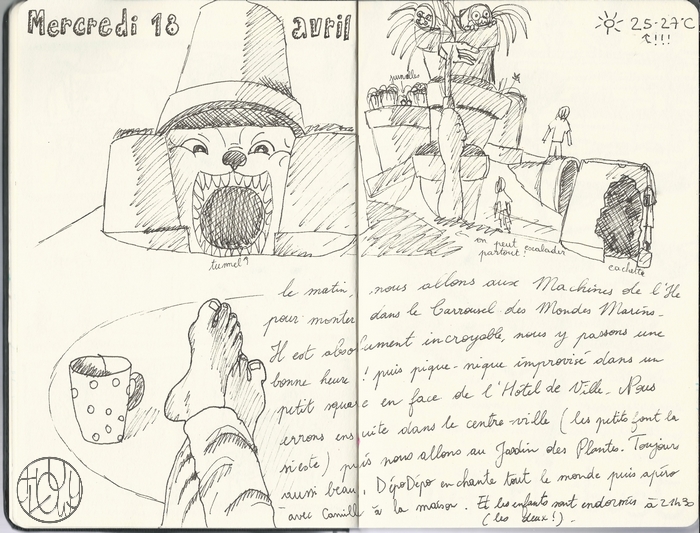 Mercredi 18 avril
25-27°C
!!!
jumelles
tunnel
on peut escalader
partout!
cachette
le matin, nous allons aux Machines de l'Ile
pour monter dans le Carrousel des Mondes Marins.
Il est absolument incroyable, nous y passons une
bonne heure ! puis pique-nique improvisé dans un
petit square en face de l'Hôtel de Ville. Nous
errons ensuite dans le centre-ville (les petits font la
sieste) puis nous allons au Jardin des Plantes. Toujours
aussi beau, DépoDépo enchante tout le monde puis apéro
avec Camille à la maison. Et les enfants sont endormis à 21h30
(les deux!).